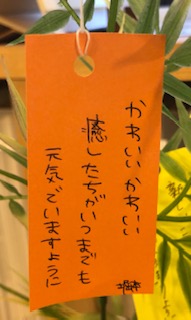 かわいいかわいい
癒したちがいつまでも
元気でいますように